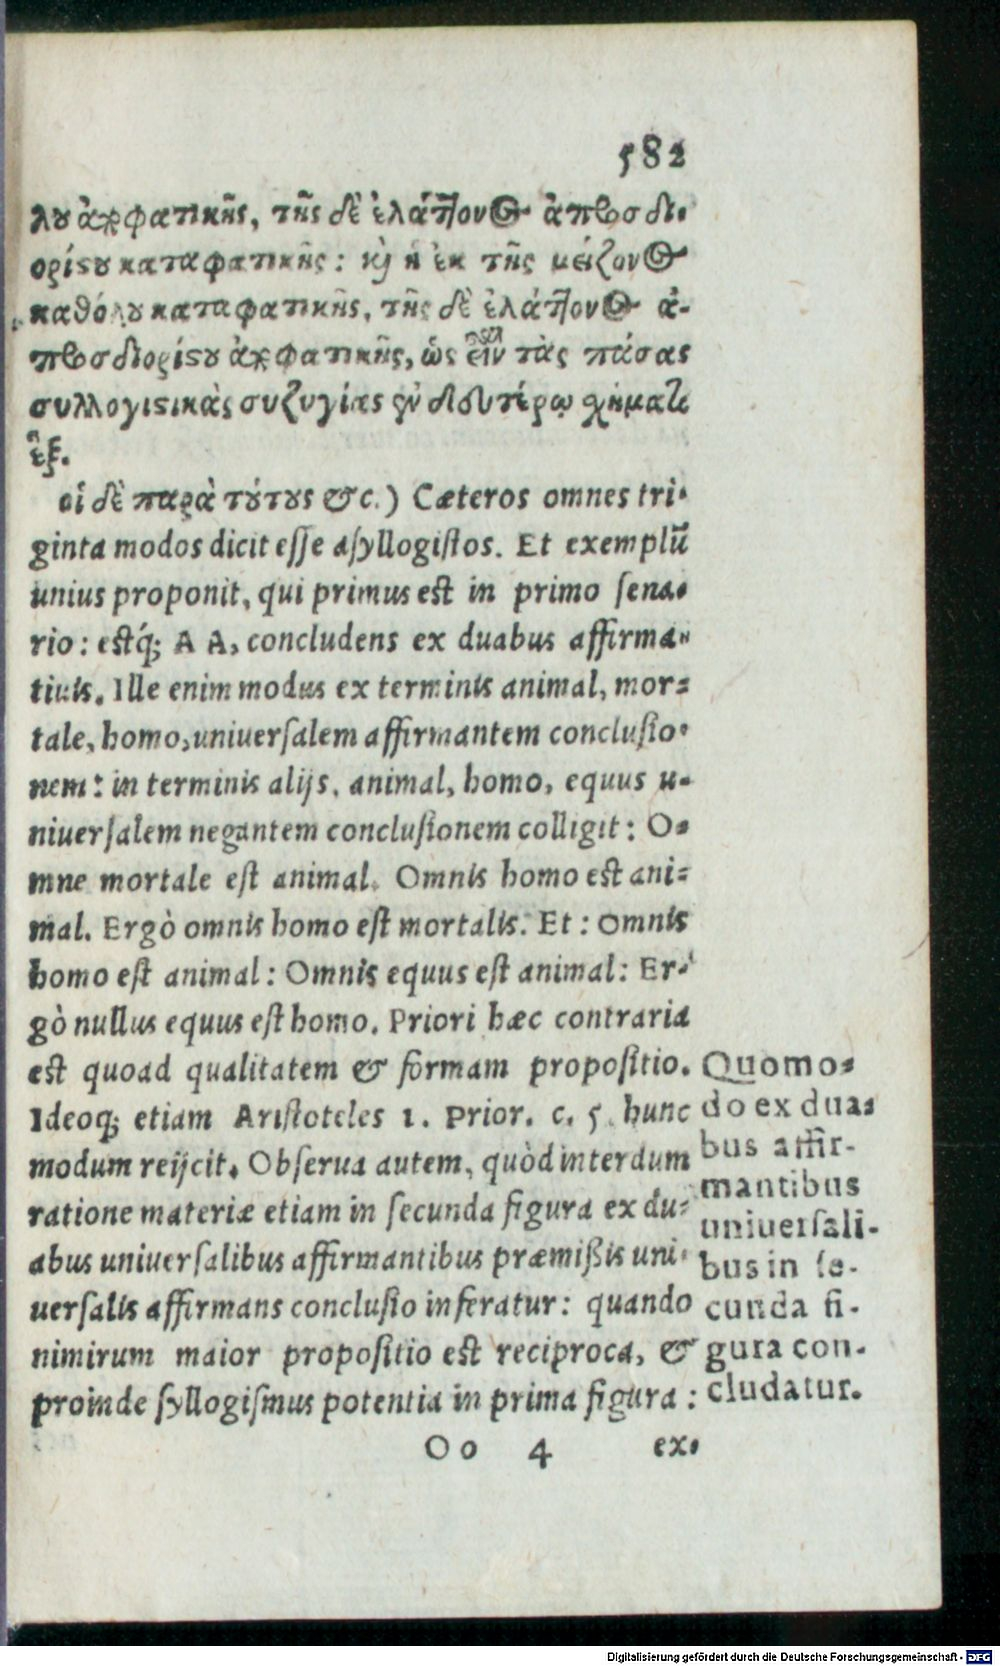 582
λου ἀποφατικῆς, τῆς δὲ ἐλάττονος ἀπροσδι-
ορίστου καταφατικῆς: καὶ ἡ ἐκ τῆς μείζονος
καθόλου καταφατικῆς, τῆς δὲ ἐλάττονος ἀ-
προσδιορίστου ἀποφατικῆς, ὡς εἶναι τὰς πάσας
συλλογιστικὰς συζυγίας ἐν δευτέρῳ σχήματι
ἓξ.
οἱ δὲ παρὰ τούτους &c.) Cæteros omnes tri-
ginta modos dicit esse asyllogistos. Et exemplũ
unius proponit, qui primus est in primo sena-
rio: estq́; A A, concludens ex duabus affirma-
tiuis. Ille enim modus ex terminis animal, mor-
tale, homo, uniuersalem affirmantem conclusio-
nem: in terminis alijs, animal, homo, equus u-
niuersalem negantem conclusionem colligit: O-
mne mortale est animal. Omnis homo est ani-
mal. Ergò omnis homo est mortalis. Et: Omnis
homo est animal: Omnis equus est animal: Er-
gò nullus equus est homo. Priori hæc contraria
est quoad qualitatem & formam propositio.
Ideoq; etiam Aristoteles 1. Prior. c. 5. hunc
modum reijcit. Obserua autem, quòd interdum
ratione materiæ etiam in secunda figura ex du-
abus uniuersalibus affirmantibus præmißis uni-
uersalis affirmans conclusio inferatur: quando
nimirum maior propositio est reciproca, &
proinde syllogismus potentia in prima figura:
Quomo-
do ex dua-
bus affir-
mantibus
uniuersali-
bus in se-
cunda fi-
gura con-
cludatur.
Oo 4 ex-
Digitalisierung gefördert durch die Deutsche Forschungsgemeinschaft - DFG